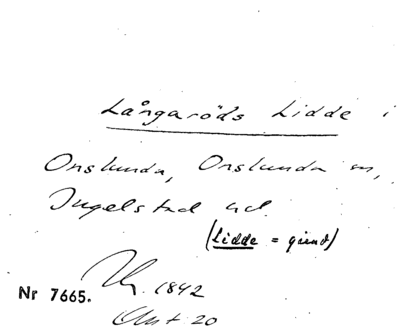 Långaröds Lidde i
Onslunda, Onslunda sn,
Ingelstad hd.
(Lidde = grind)
1842
Nr 7665.
20